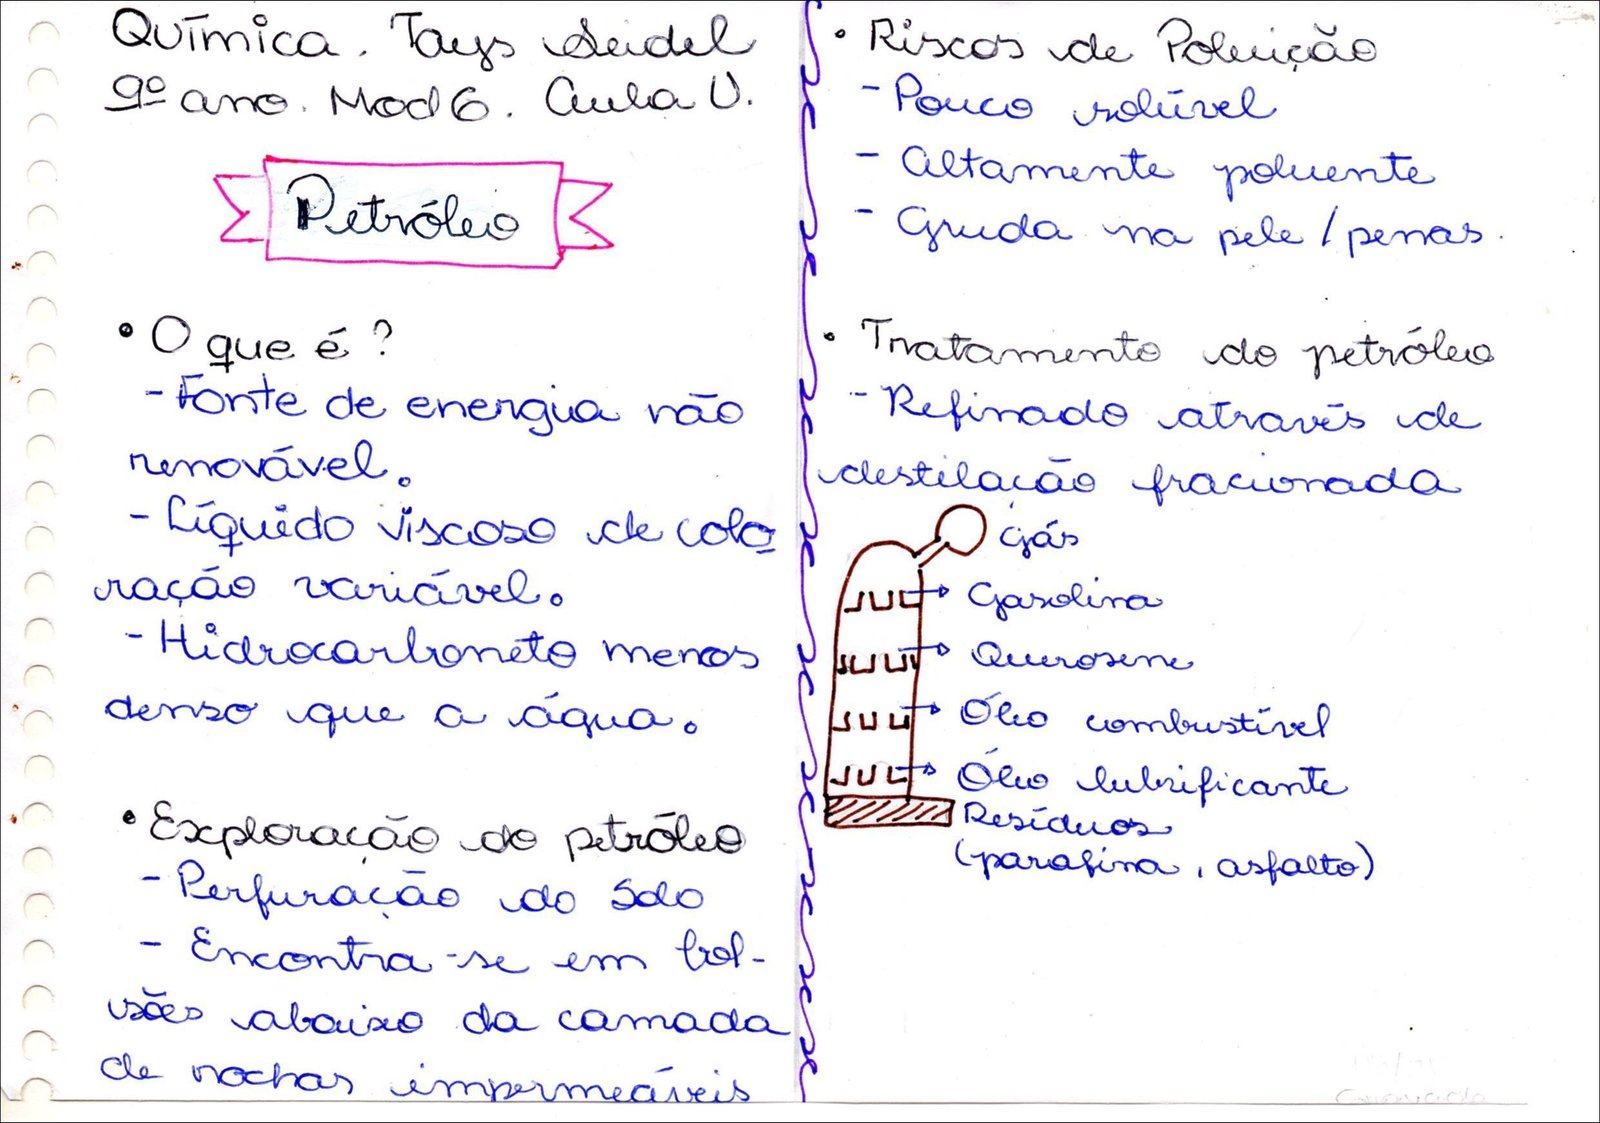 Química. Tays Seidel
9º ano. Mod 6. Aula U.
Petróleo
• O que é?
- Fonte de energia não
renovável.
- Líquido viscoso de colo-
ração variável.
- Hidrocarboneto menos
denso que a água.
• Exploração do petróleo
- Perfuração do solo
- Encontra-se em bol-
sões abaixo da camada
de rochas impermeáveis
• Riscos de Poluição
- Pouco solúvel
- Altamente poluente
- Gruda na pele / penas.
• Tratamento do petróleo
- Refinado através de
destilação fracionada
gás
Gasolina
Querosene
Óleo combustível
Óleo lubrificante
Resíduos
(parafina, asfalto)